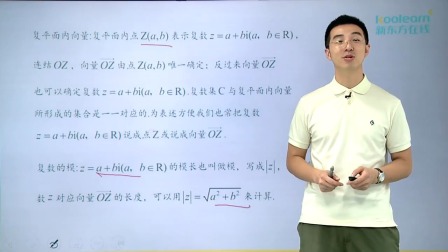 koolearn
新东方在线
复平面内向量:复平面内点Z(a,b)表示复数z=a+bi(a，b∈R)，
连结OZ，向量OZ由点Z(a,b)唯一确定；反过来向量OZ
也可以确定复数z=a+bi(a，b∈R). 复数集C与复平面内向量
所形成的集合是一一对应的.为表述方便我们也常把复数
z=a+bi(a，b∈R)说成点Z或说成向量OZ.
复数的模: z=a+bi(a，b∈R)的模长也叫做模，写成|z|，
数z对应向量OZ的长度，可以用|z|=√(a²+b²)来计算.